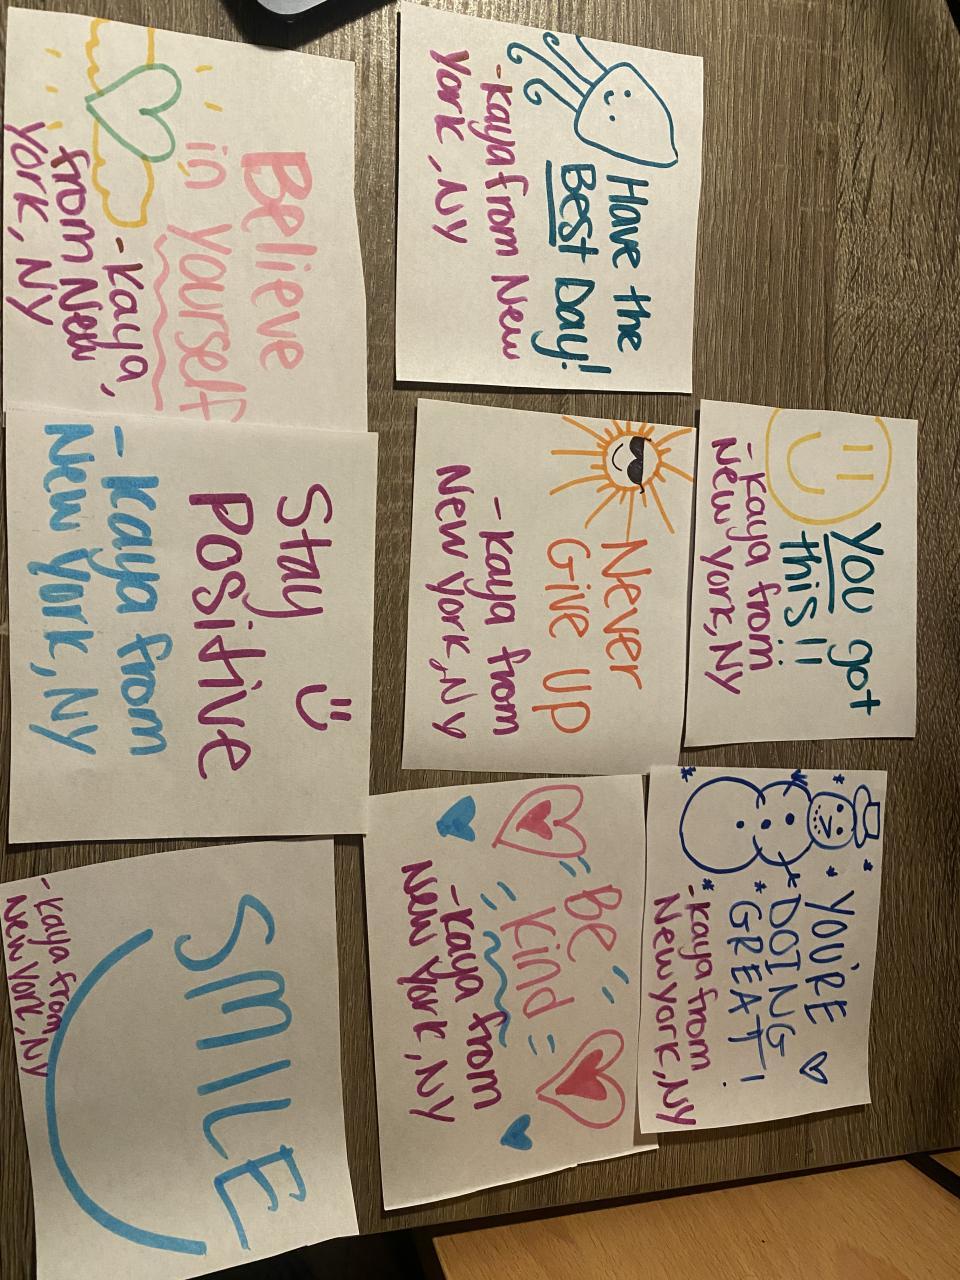 Have the
BEST Day!
-Kaya from New
York, NY
Believe
in yourself
-Kaya,
from New
York, NY
You got
this!!
-Kaya from
New York, NY
Never
Give Up
-Kaya from
New York, NY
Stay
Positive
-Kaya from
New York, NY
YOU'RE
DOING
GREAT!
-Kaya from
New York, NY
Be
Kind
-Kaya from
New York, NY
SMILE
-Kaya from
New York, NY